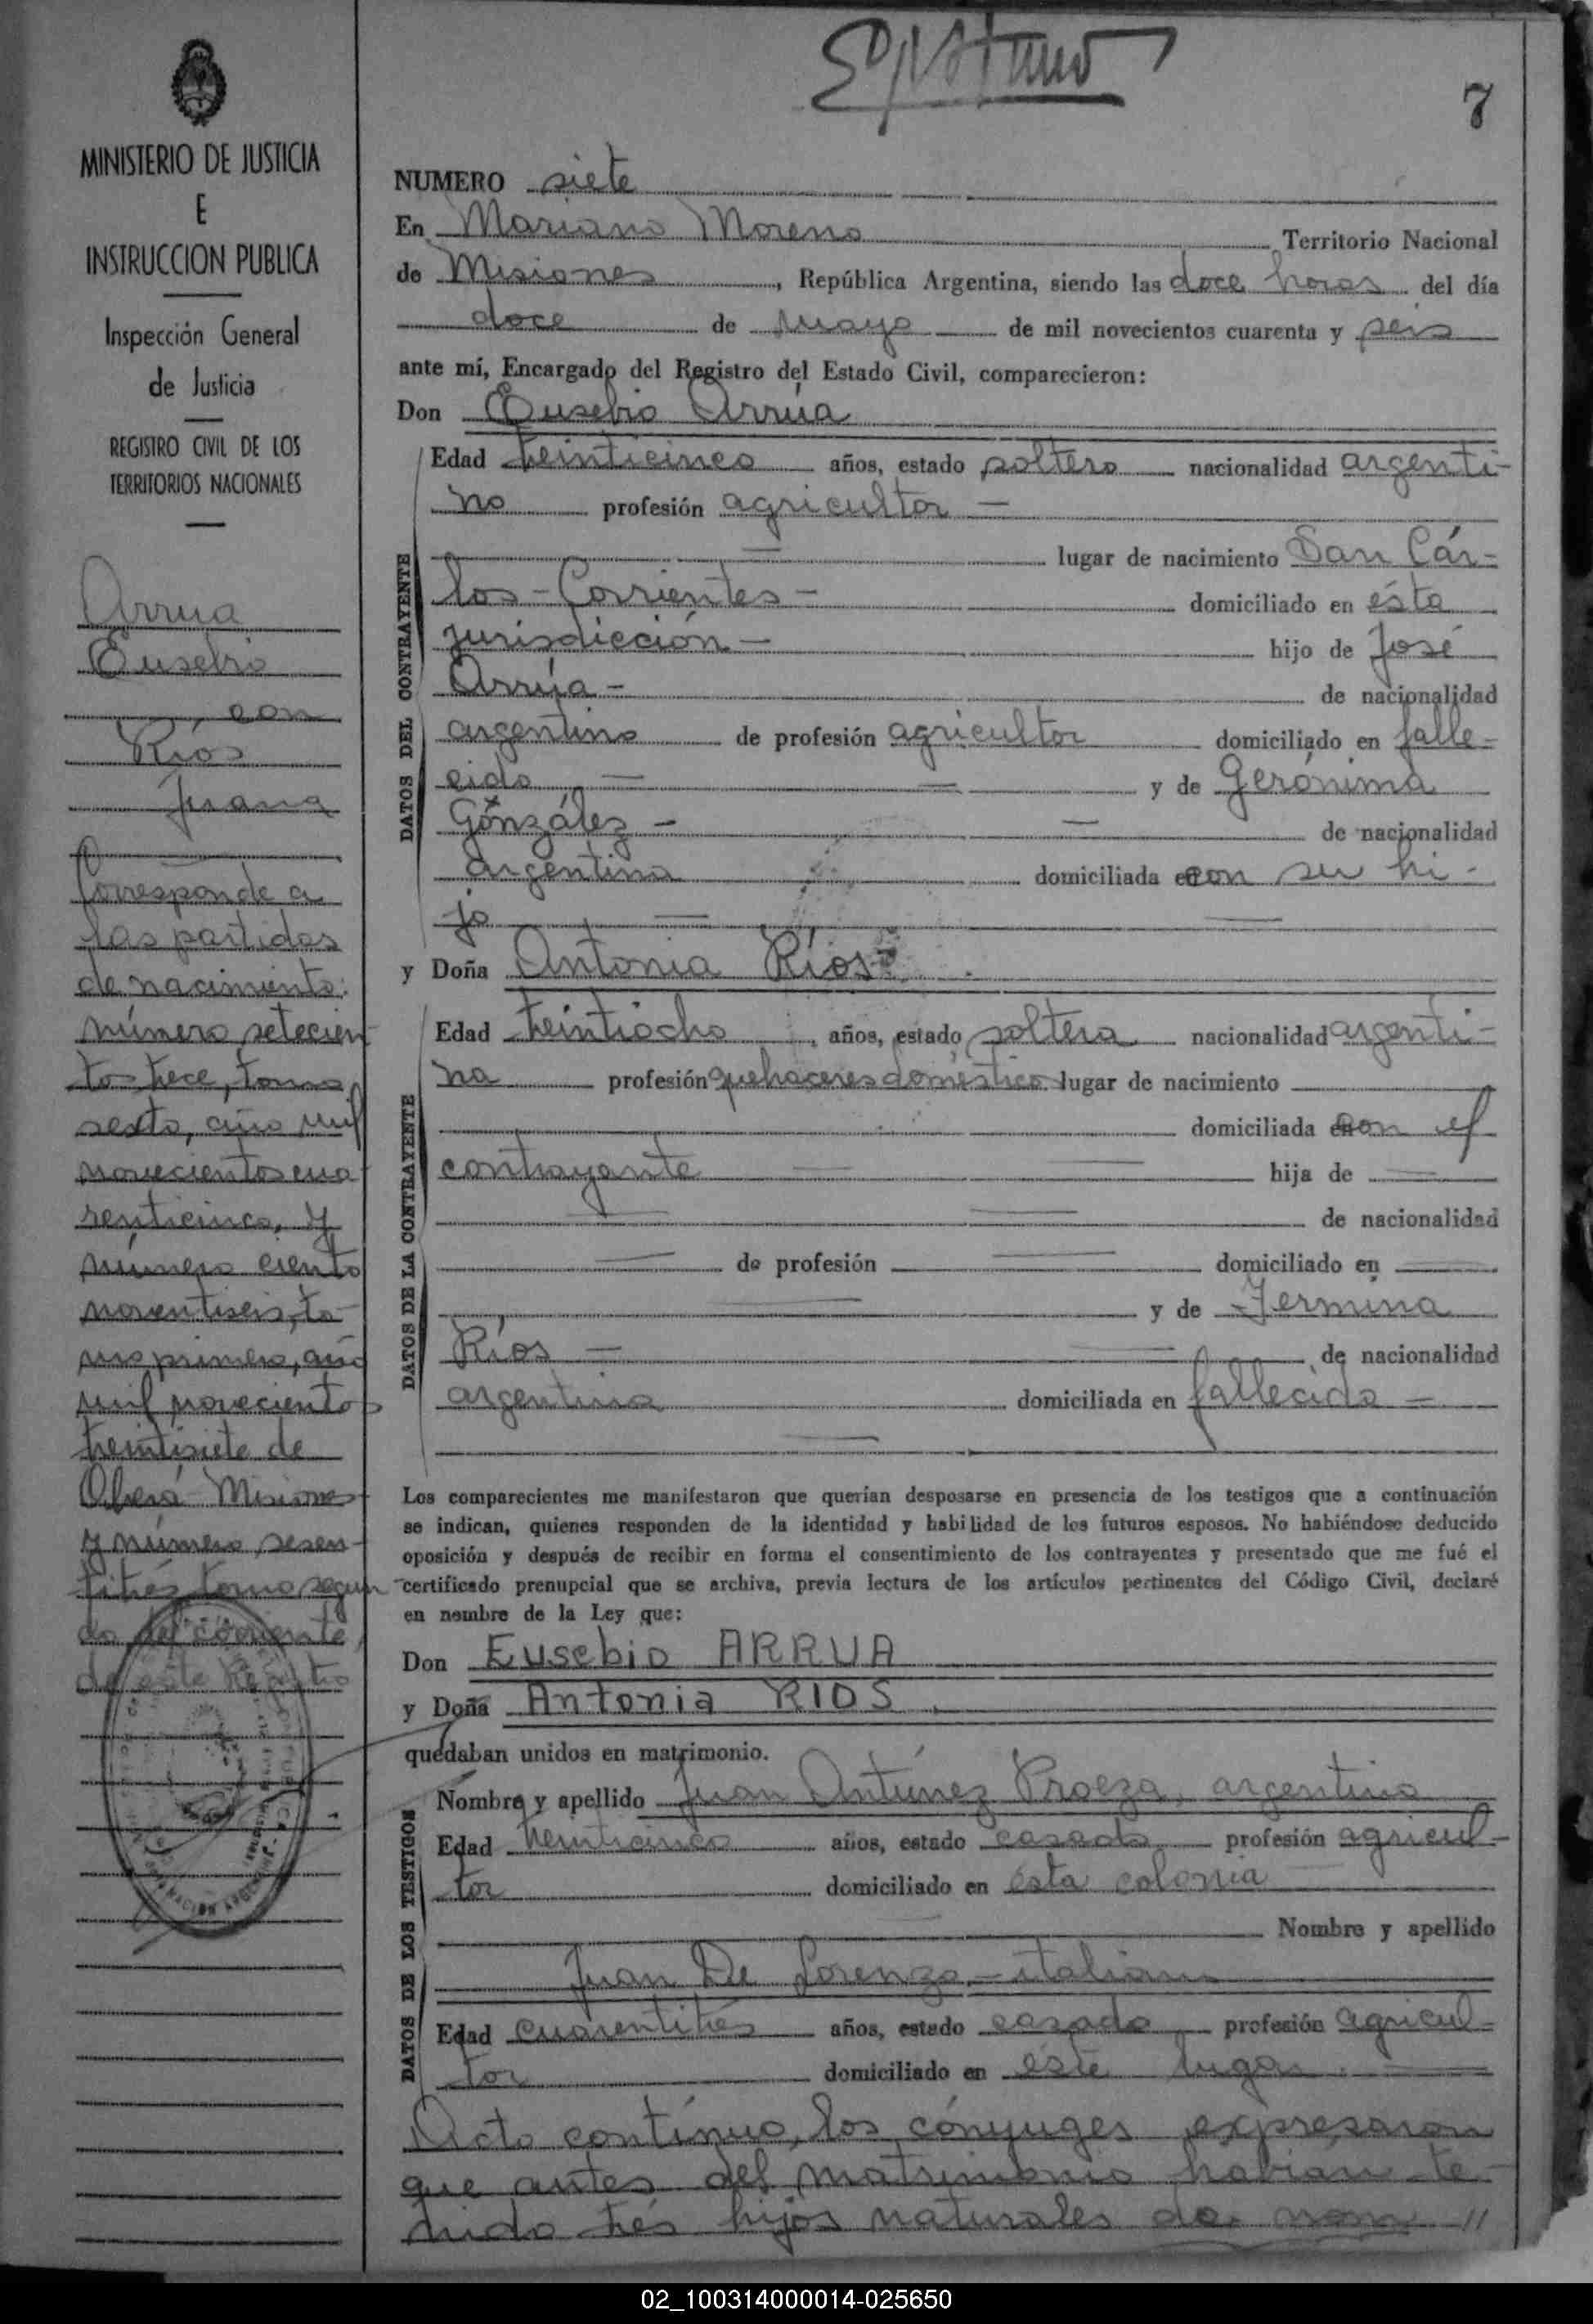 7
MINISTERIO DE JUSTICIA
E
INSTRUCCION PUBLICA
Inspección General
de Justicia
REGISTRO CIVIL DE LOS
TERRITORIOS NACIONALES
Arrua
Eusebio
con
Ríos
Juana
Corresponde a
las partidas
de nacimiento:
número setecien
tos trece, tomo
sexto, año mil
novecientos cua
renticinco, y
número ciento
noventiseis, to-
mo primero, año
mil novecientos
treintisiete de
Oberá Misiones
y número, sesen-
titrés tomo segun
do, del corriente
de este Registro
NUMERO siete
En Mariano Moreno Territorio Nacional
de Misiones, República Argentina, siendo las doce horas del día
doce de mayo de mil novecientos cuarenta y seis
ante mí, Encargado del Registro del Estado Civil, comparecieron:
Don Eusebio Arrúa
DATOS DEL CONTRAYENTE
Edad treinticinco años, estado soltero nacionalidad argenti-
no profesión agricultor —
— lugar de nacimiento San Cár-
los - Corrientes - domiciliado en ésta
jurisdicción - hijo de José
Arrúa - de nacionalidad
argentino de profesión agricultor domiciliado en falle-
cido — — y de Gerónima
González - — de nacionalidad
argentina domiciliada con su hi-
jo — —
y Doña Antonia Ríos
DATOS DE LA CONTRAYENTE
Edad treintiocho, años, estado soltera nacionalidad argenti-
na profesión quehaceres doméstico lugar de nacimiento
domiciliada con el
contrayante — — hija de —
— — de nacionalidad
— de profesión — domiciliado en —
— y de Fermina
Ríos — — de nacionalidad
argentina domiciliada en fallecida —
—
Los comparecientes me manifestaron que querían desposarse en presencia de los testigos que a continuación
se indican, quienes responden de la identidad y habilidad de los futuros esposos. No habiéndose deducido
oposición y después de recibir en forma el consentimiento de los contrayentes y presentado que me fué el
certificado prenupcial que se archiva, previa lectura de los artículos pertinentes del Código Civil, declaré
en nombre de la Ley que:
Don Eusebio ARRUA
y Doña Antonia RIOS
quedaban unidos en matrimonio.
DATOS DE LOS TESTIGOS
Nombre y apellido Juan Antúnez Proeza, argentino
Edad treinticinco años, estado casado profesión agricul-
tor domiciliado en ésta colonia
Nombre y apellido
Juan De Lorenzo, - italiano
Edad cuarentitrés años, estado casado profesión agricul-
tor domiciliado en éste lugar. —
Acto contínuo, los cónyuges expresaron
que antes del matrimonio habían te-
nido trés hijos naturales de nom //
02_100314000014-025650